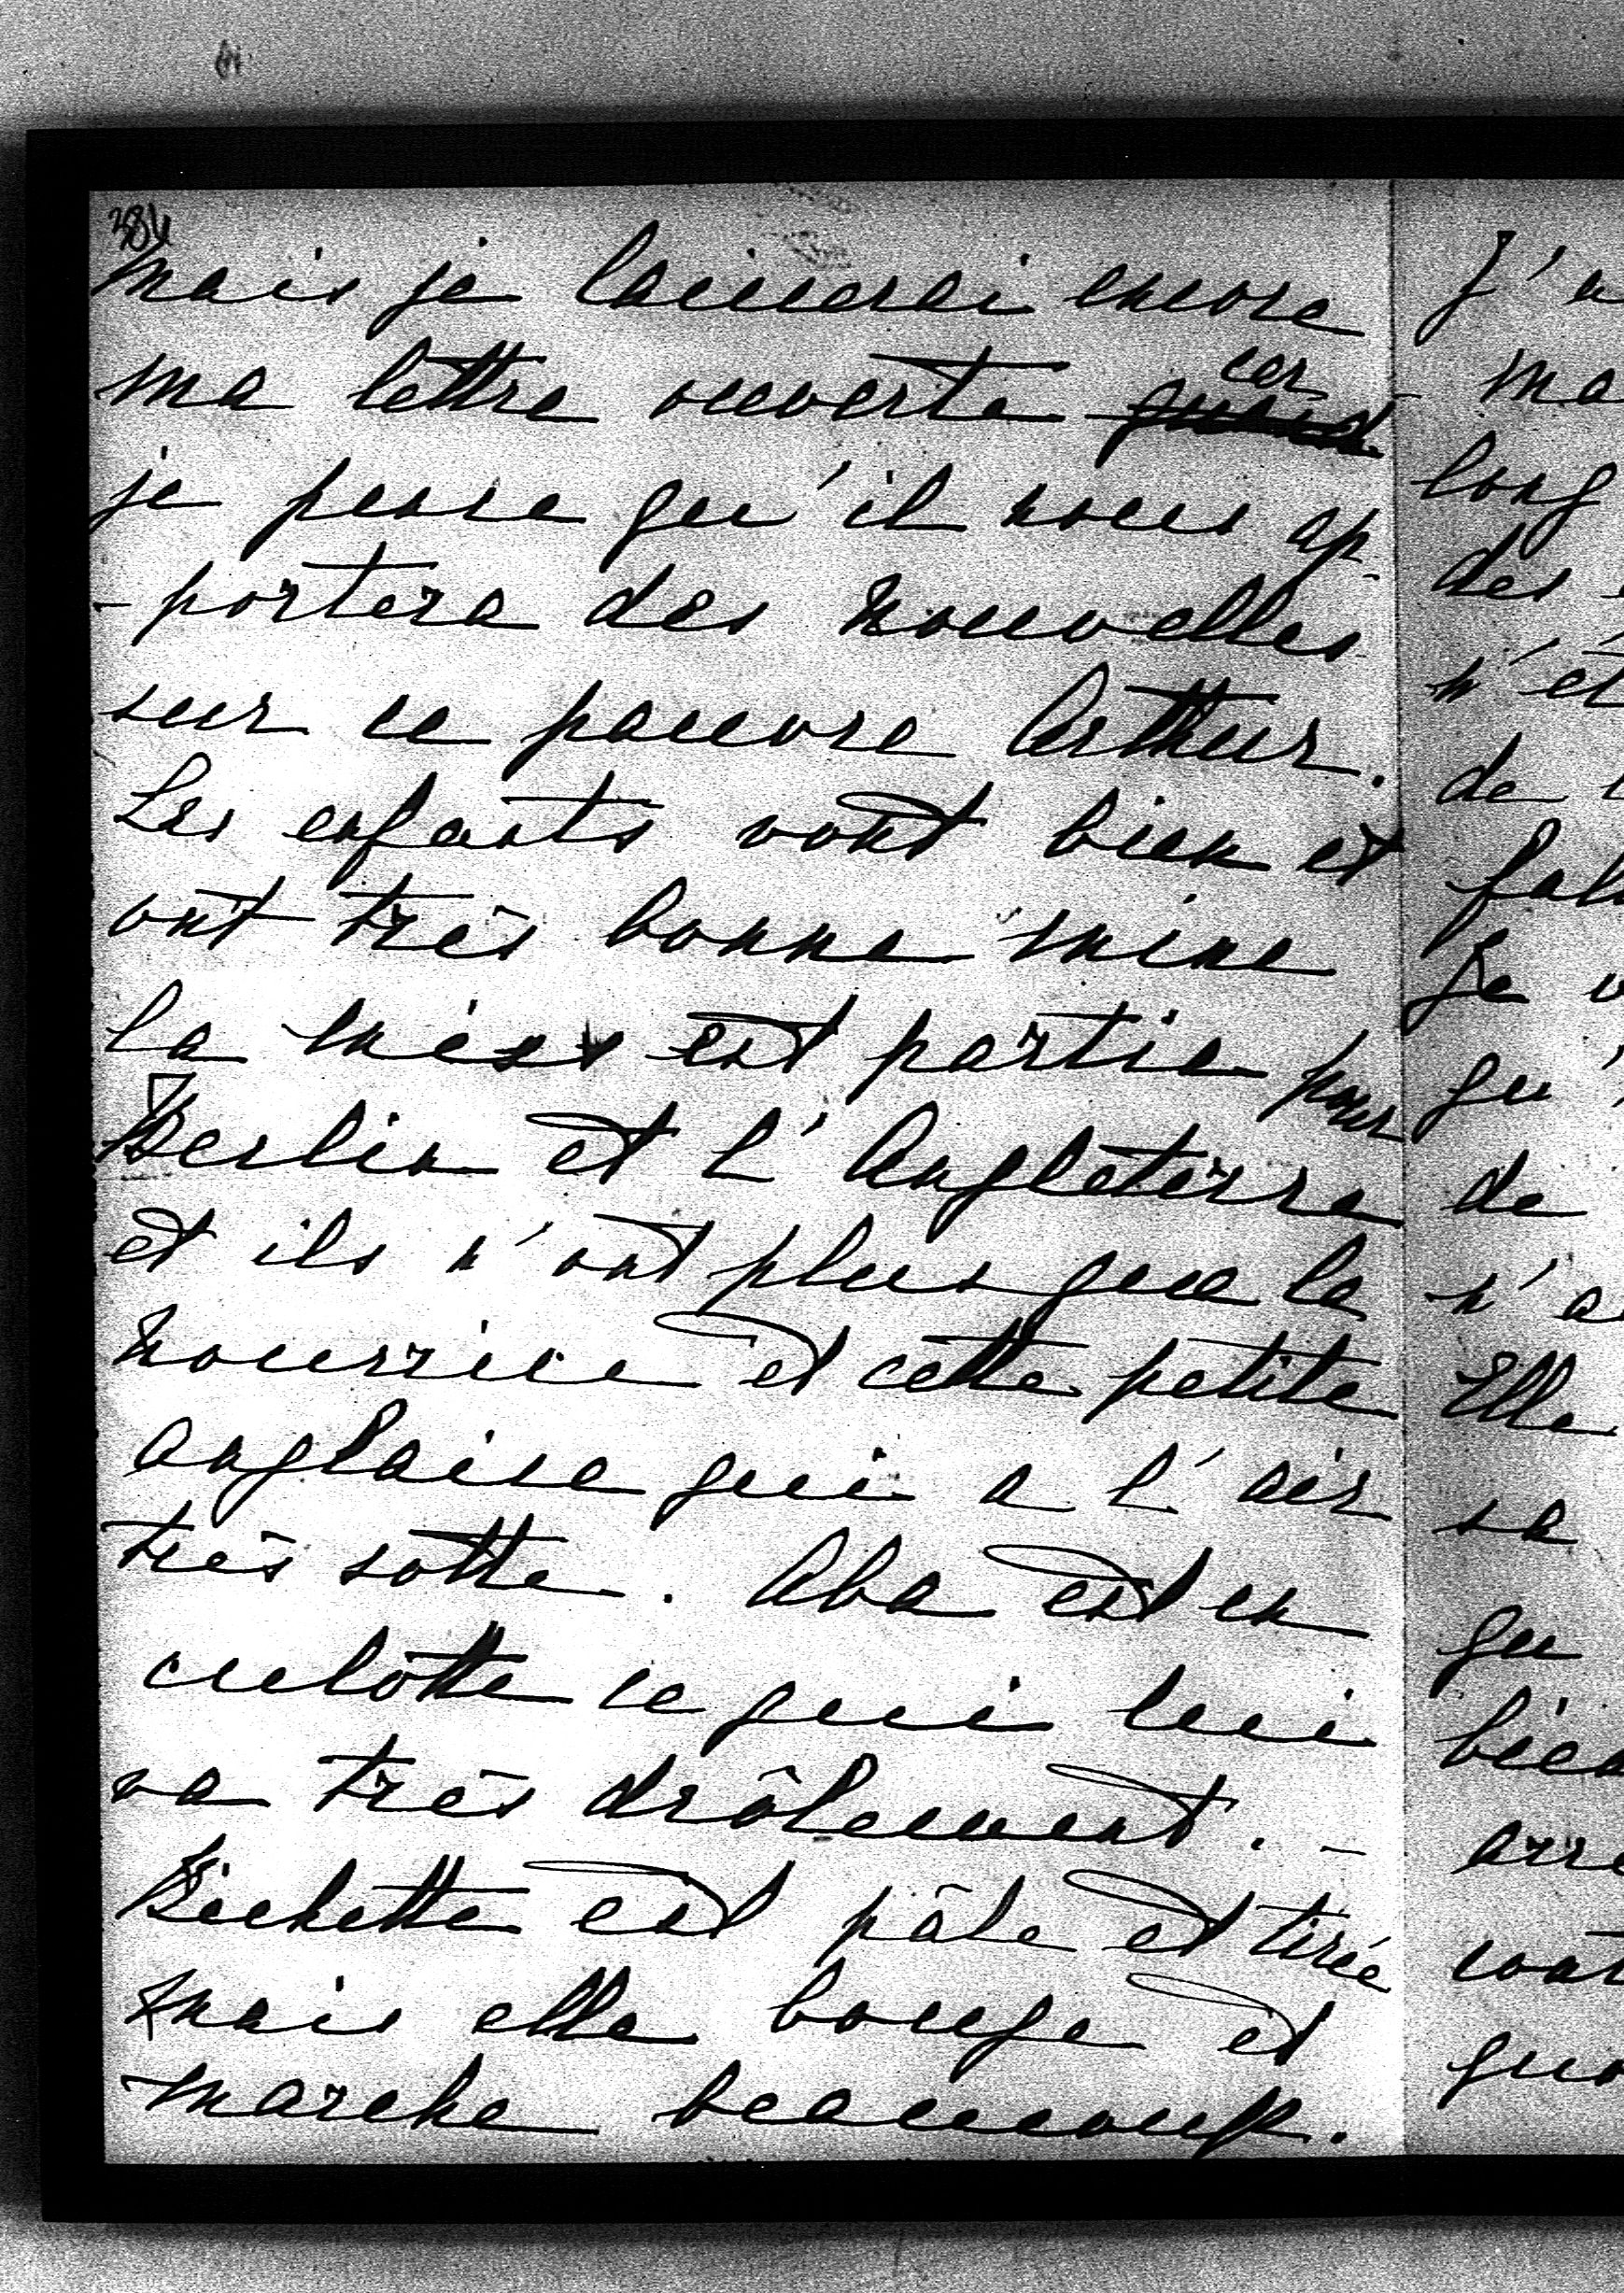 384
mais je laisserai encore
ma lettre ouverte car
je pense qu'il nous ap-
-portera des nouvelles
sur ce pauvre Arthur.
Les enfants vont bien et
ont très bonne mine
La miss est partie pour
Berlin et l'Angleterre
et ils n'ont plus que la
nourrice et cette petite
anglaise qui a l'air
très sotte. Aba est en
culotte ce qui lui
va très drôlement. -
Bichette est pâle et tirée
mais elle bouge et
marche beaucoup.
J'a
ma
long
des
n'ét
de
fal
Je v
qu'
de
n'a
Elle
sa
qu
bien
arre
cont
quo